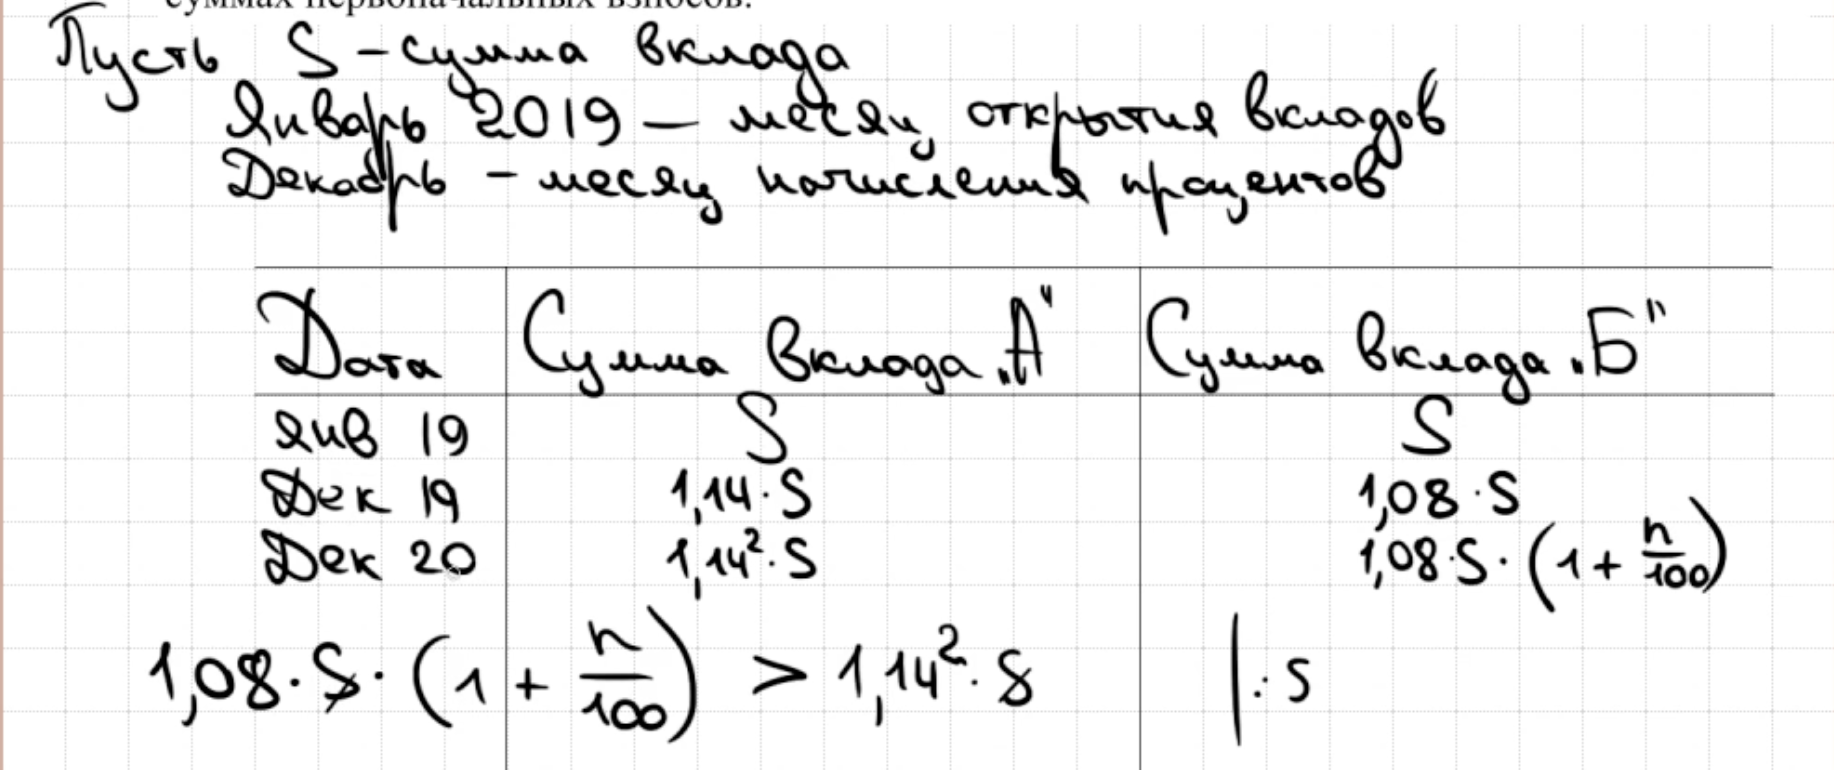 суммах первоначальных взносов.
Пусть S – сумма вклада
Январь 2019 — месяц открытия вкладов
Декабрь – месяц начисления процентов
Дата Сумма вклада „А" Сумма вклада „Б"
Янв 19 S S
Дек 19 1,14·S 1,08·S
Дек 20 1,14²·S 1,08·S·(1+n/100)
1,08·S·(1+n/100) > 1,14²·S |:S